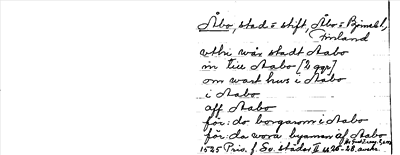 Åbo, stad o stift, Åbo o Björneb. l,
Finland
vthi wår stadt Aabo
in till Aabo [2 ggr]
om wart hus i Aabo
i Aabo
aff Aabo
för: do borgarom i Aabo
för: da wora byamen af Aabo
1525 Priv. f. Sv. städer II s 26-28